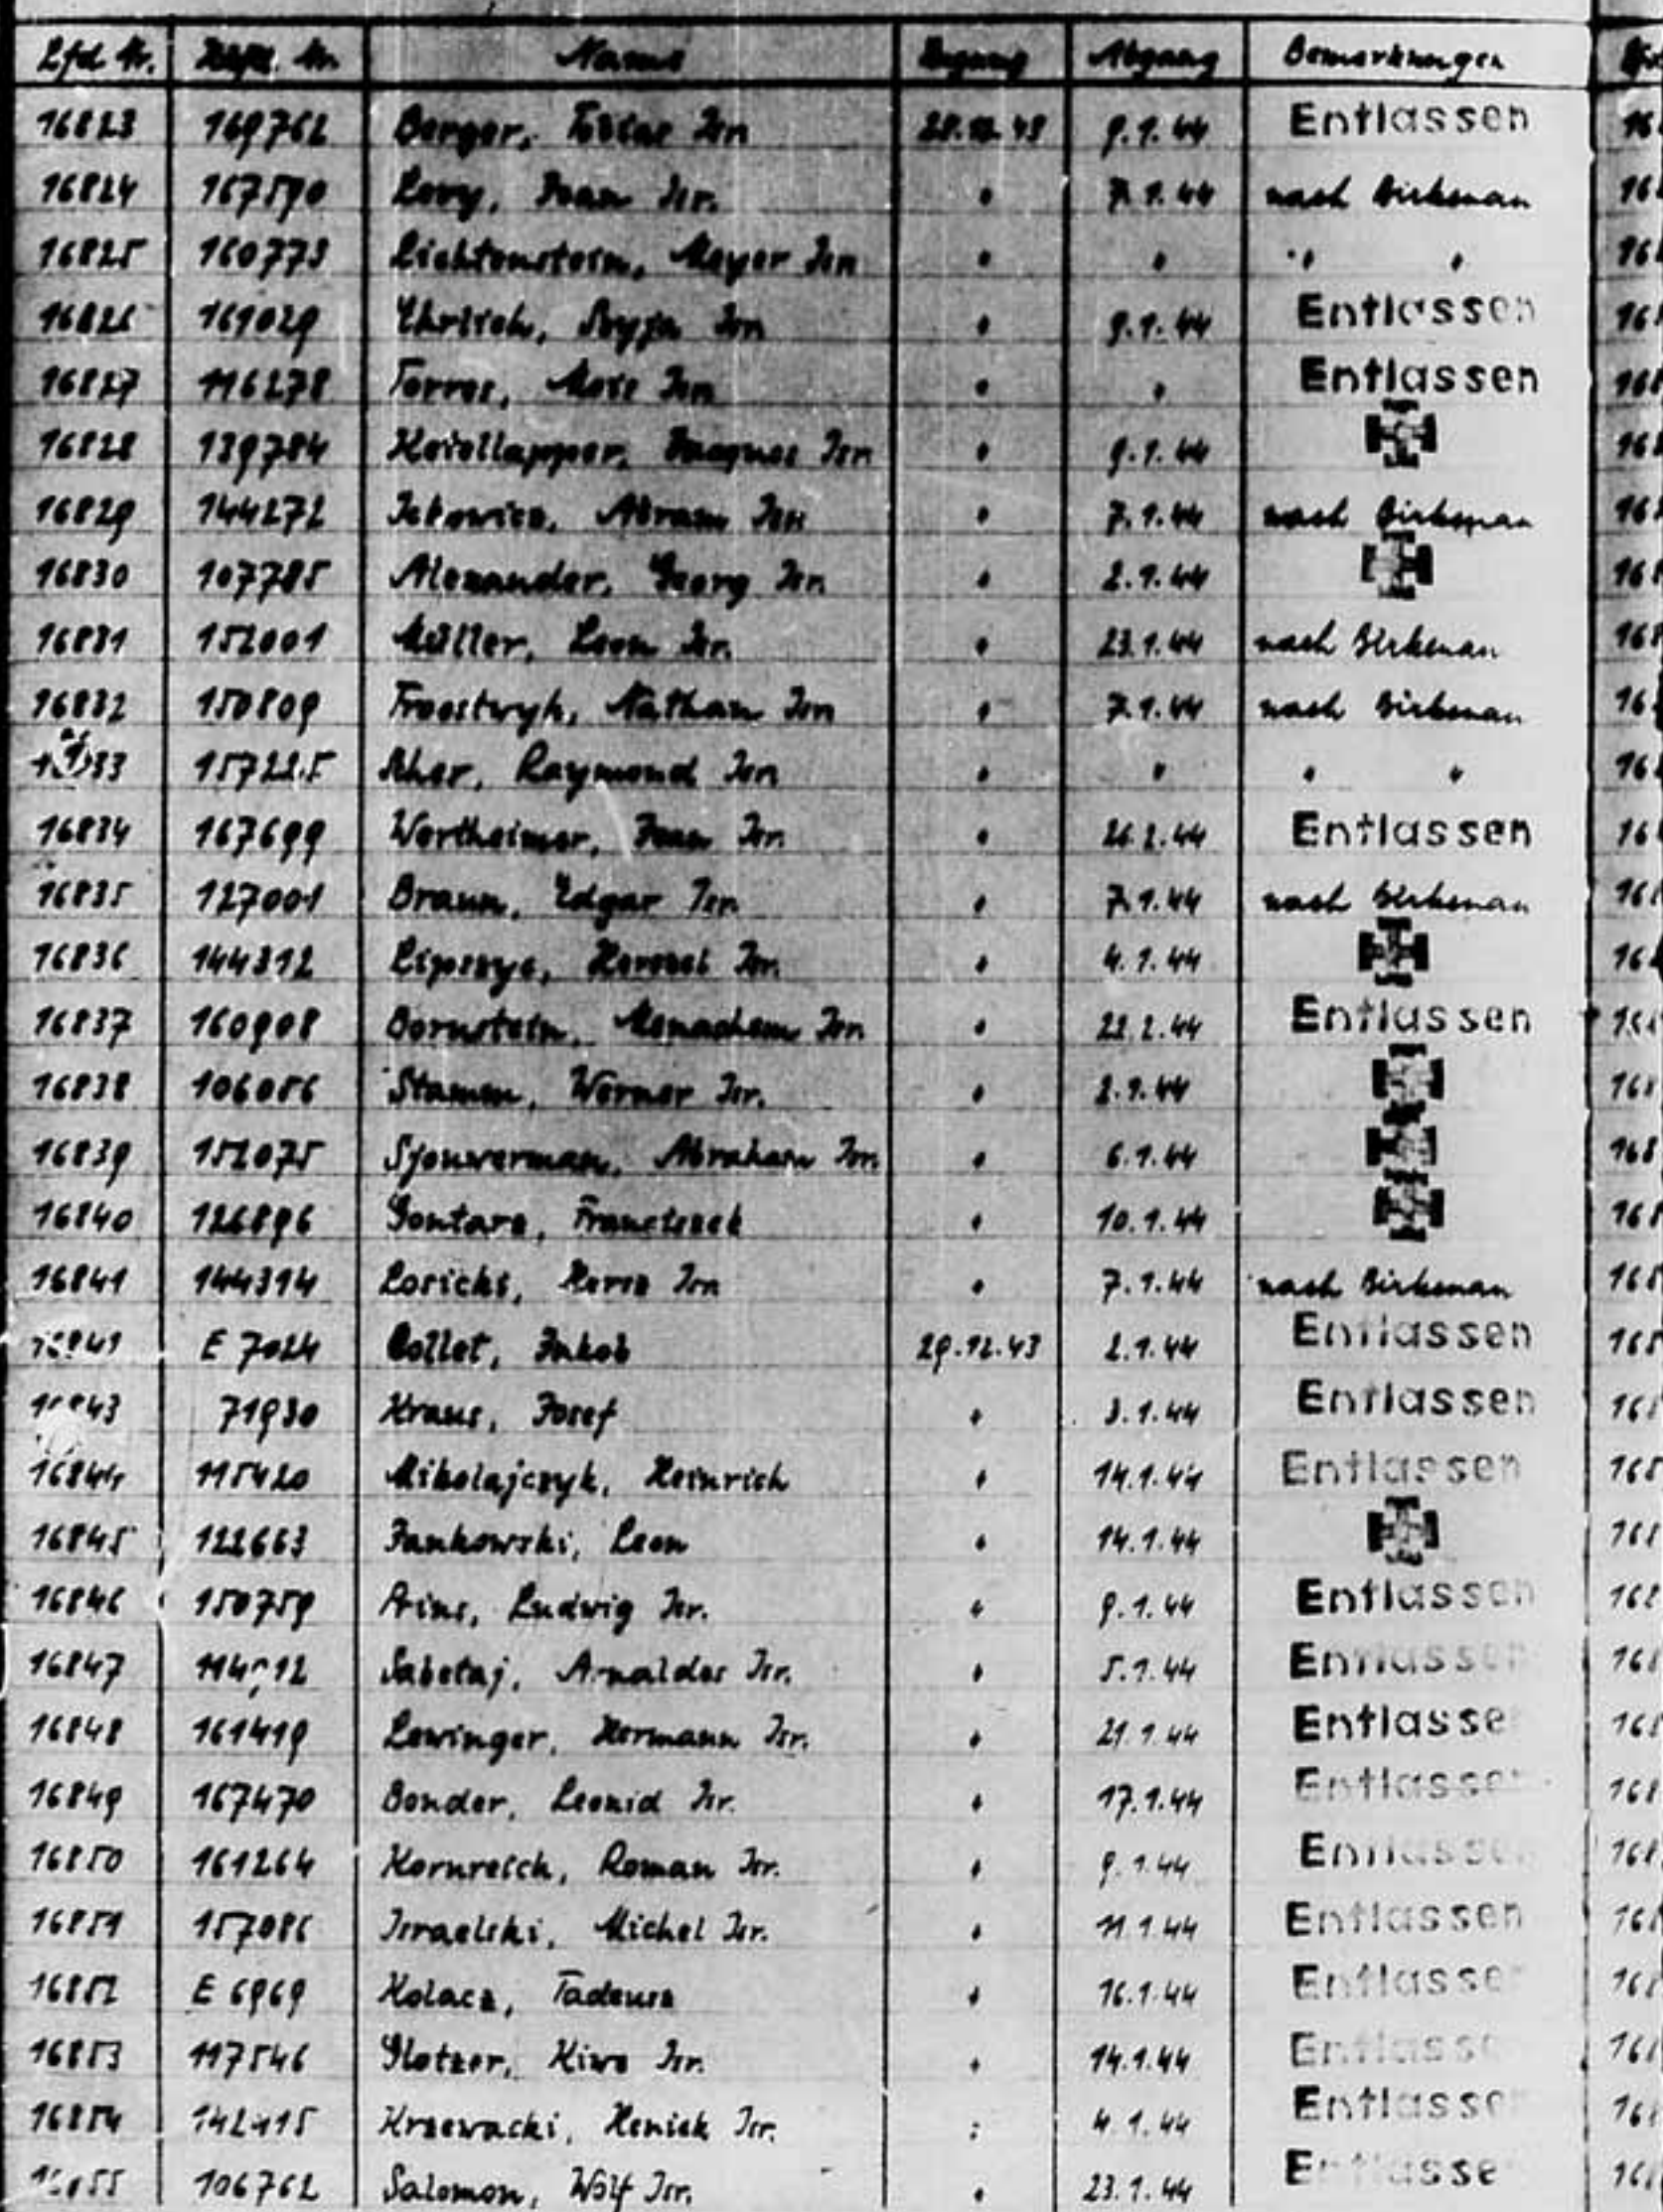 Lfd. Nr. Name Zugang Abgang Bemerkungen
16823 169762 Berger, Isr. 28.12.43 9.1.44 Entlassen
16824 167590 Levy, Jean Isr. " 7.1.44 nach Birkenau
16825 160773 Lichtenstein, Meyer Isr. " " " "
16826 161029 Ehrlich, Isr. " 9.1.44 Entlassen
16827 116278 Torres, Isr. " " Entlassen
16828 139784 Jacques Isr. " 9.1.44
16829 144272 Ickowicz, Abram Isr. " 7.1.44 nach Birkenau
16830 107785 Alexander, Georg Isr. " 2.1.44
16831 152001 Müller, Leon Isr. " 23.1.44 nach Birkenau
16832 150809 Froostwyk, Nathan Isr. " 7.1.44 nach Birkenau
157225 Raymond Isr. " " " "
16834 167699 Wertheimer, Jean Isr. " 26.2.44 Entlassen
16835 127001 Braun, Edgar Isr. " 7.1.44 nach Birkenau
16836 144312 Lipszyc, Herszel Isr. " 4.1.44
16837 160908 Bornstein, Menachem Isr. " 22.2.44 Entlassen
16838 106086 Stamm, Werner Isr. " 2.1.44
16839 152075 Sjouwerman, Abraham Isr. " 6.1.44
16840 126896 Gontarz, Franciszek " 10.1.44
16841 144314 Losicki, Hersz Isr. " 7.1.44 nach Birkenau
E 7024 Collet, Jakob 29.12.43 2.1.44 Entlassen
71930 Kraus, Josef " 3.1.44 Entlassen
16844 115420 Mikolajczyk, Heinrich " 14.1.44 Entlassen
16845 122663 Jankowski, Leon " 14.1.44
16846 150759 Prins, Ludwig Isr. " 9.1.44 Entlassen
16847 Sabetaj, Arnaldos Isr. " 5.1.44 Entlassen
16848 161419 Lewinger, Hermann Isr. " 21.1.44 Entlassen
16849 167470 Bonder, Leonid Isr. " 17.1.44 Entlassen
16850 161264 Kornreich, Roman Isr. " 9.1.44 Entlassen
16851 157086 Israelski, Michel Isr. " 11.1.44 Entlassen
16852 E 6969 Kolacz, Tadeusz " 16.1.44 Entlassen
16853 117546 Glotzer, Kiwa Isr. " 14.1.44 Entlassen
16854 142415 Krzewacki, Heniek Isr. " 4.1.44 Entlassen
106762 Salomon, Wolf Isr. " 23.1.44 Entlassen